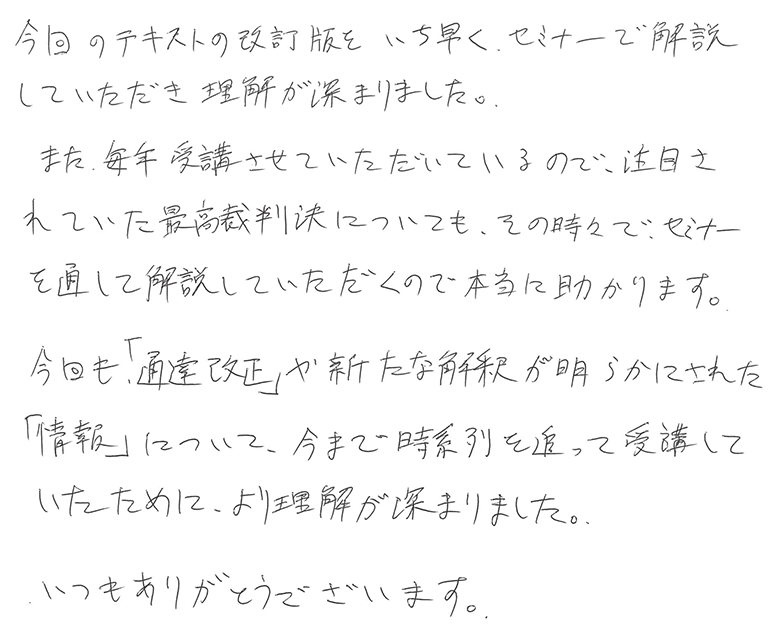 今回のテキストの改訂版を いち早く、セミナーで解説
していただき 理解が深まりました。
また、毎年 受講させていただいているので、注目さ
れていた最高裁判決についても、その時々で、セミナー
を通して解説していただくので本当に助かります。
今回も、「通達改正」や新たな解釈が明らかにされた
「情報」について、今まで時系列を追って受講して
いたために、より理解が深まりました。
いつもありがとうございます。